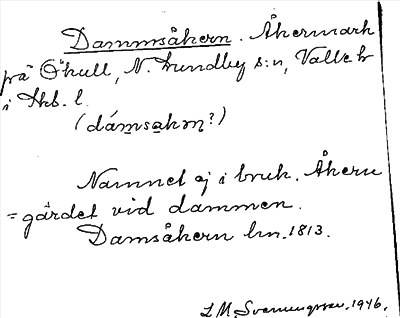 Dammsåkern. Åkermark
på Ökull, N. Lundby s:n, Valle hr
i Skb. l.
(dámsakɳ?)
Namnet ej i bruk. Åkern
= gärdet vid dammen.
Damsåkern lm. 1813.
L M Svenungsson. 1946.